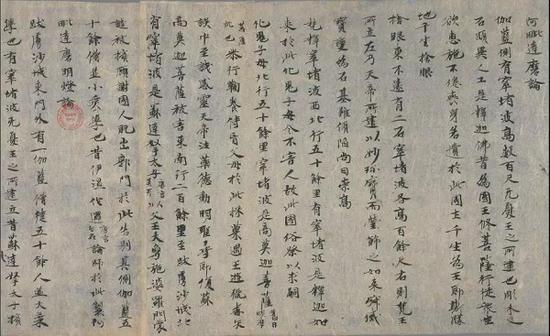 何毗達磨論
伽藍側有窣堵波高數百尺无憂王之所建也彫木文
石頗異人工是釋迦佛昔爲國王修菩薩行從衆生
欲惠施不倦喪身若遺於此國土千生爲王即斯勝
地千生捨眼
捨眼東不遠有二石窣堵波各高百餘尺右則梵王
所立左乃天帝所建以妙珎寳而瑩飾之如來寂滅
寳變爲石基雖傾陷尚曰崇高
梵釋窣堵波西北行五十餘里有窣堵波是釋迦如
來於此化鬼子母令不害人故此國俗祭以求嗣
化鬼子母北行五十餘里有窣堵波是商莫迦菩薩舊曰
恭行鞠養侍盲父母於此採菓遇王遊獵毒矢
誤中至誠感靈天帝注藥德動明聖尋即復蘇
商莫迦菩薩被害東南行二百餘里至跋虜沙城北
有窣堵波是蘇達拏太子唐言以父王大象施婆羅門蒙
譴被擯顧謝國人既出郭門於此告別其側伽藍五
十餘僧並小乘學也昔伊濕伐邏唐言自在論師於此製阿
毗達磨明燈論
跋虜沙城東門外有一伽藍僧徒五十餘人並大乘
學也有窣堵波无憂王之所建立昔蘇達拏太子擯